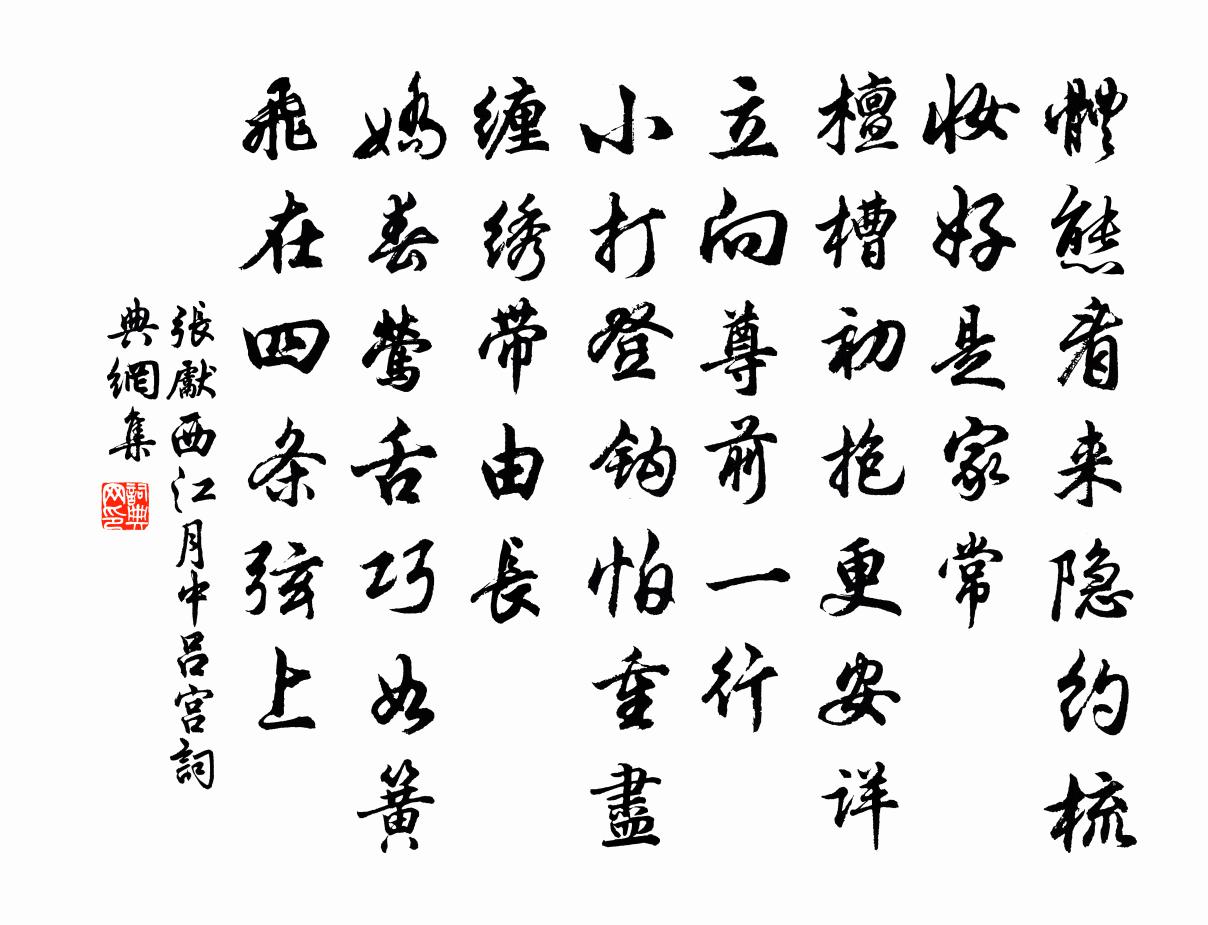 體態看来隐约梳
妆好是家常
檀槽初抱更安详
立向尊前一行
小打登钩怕重盡
缠绣带由長
娇春莺舌巧如簧
飛在四条弦上
張獻西江月中吕宫詞
典網集
詞典网印